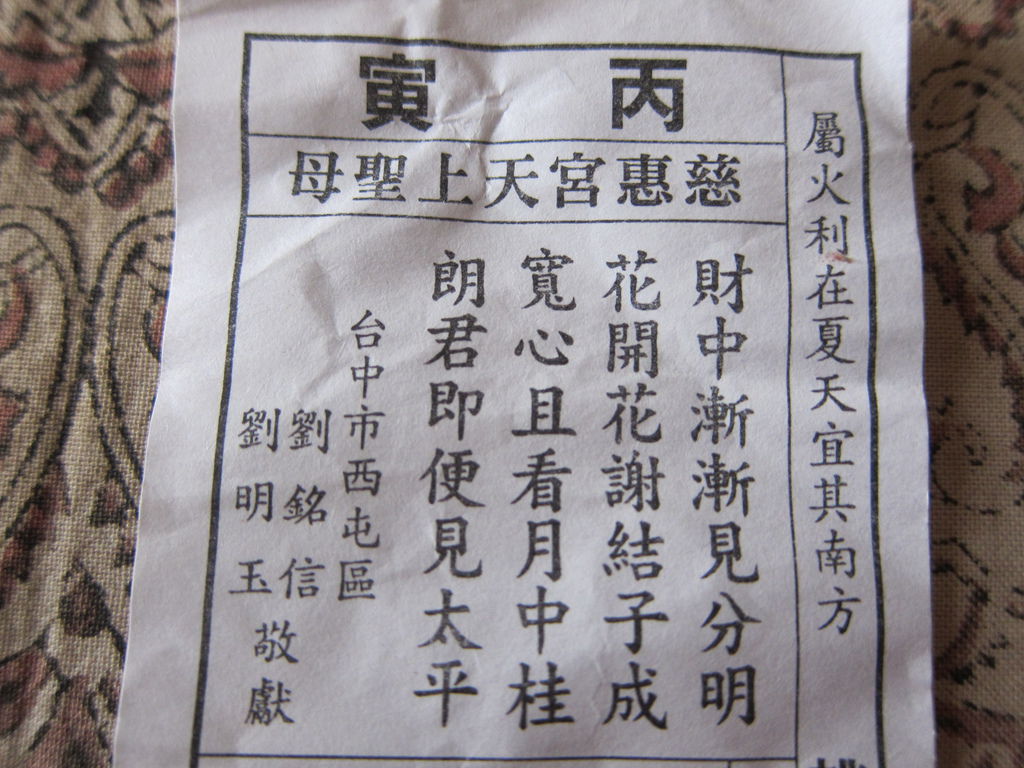 屬火利在夏天宜其南方
丙寅
慈惠宮天上聖母
財中漸漸見分明
花開花謝結子成
寬心且看月中桂
朗君即便見太平
台中市西屯區
劉銘信
劉明玉
敬獻